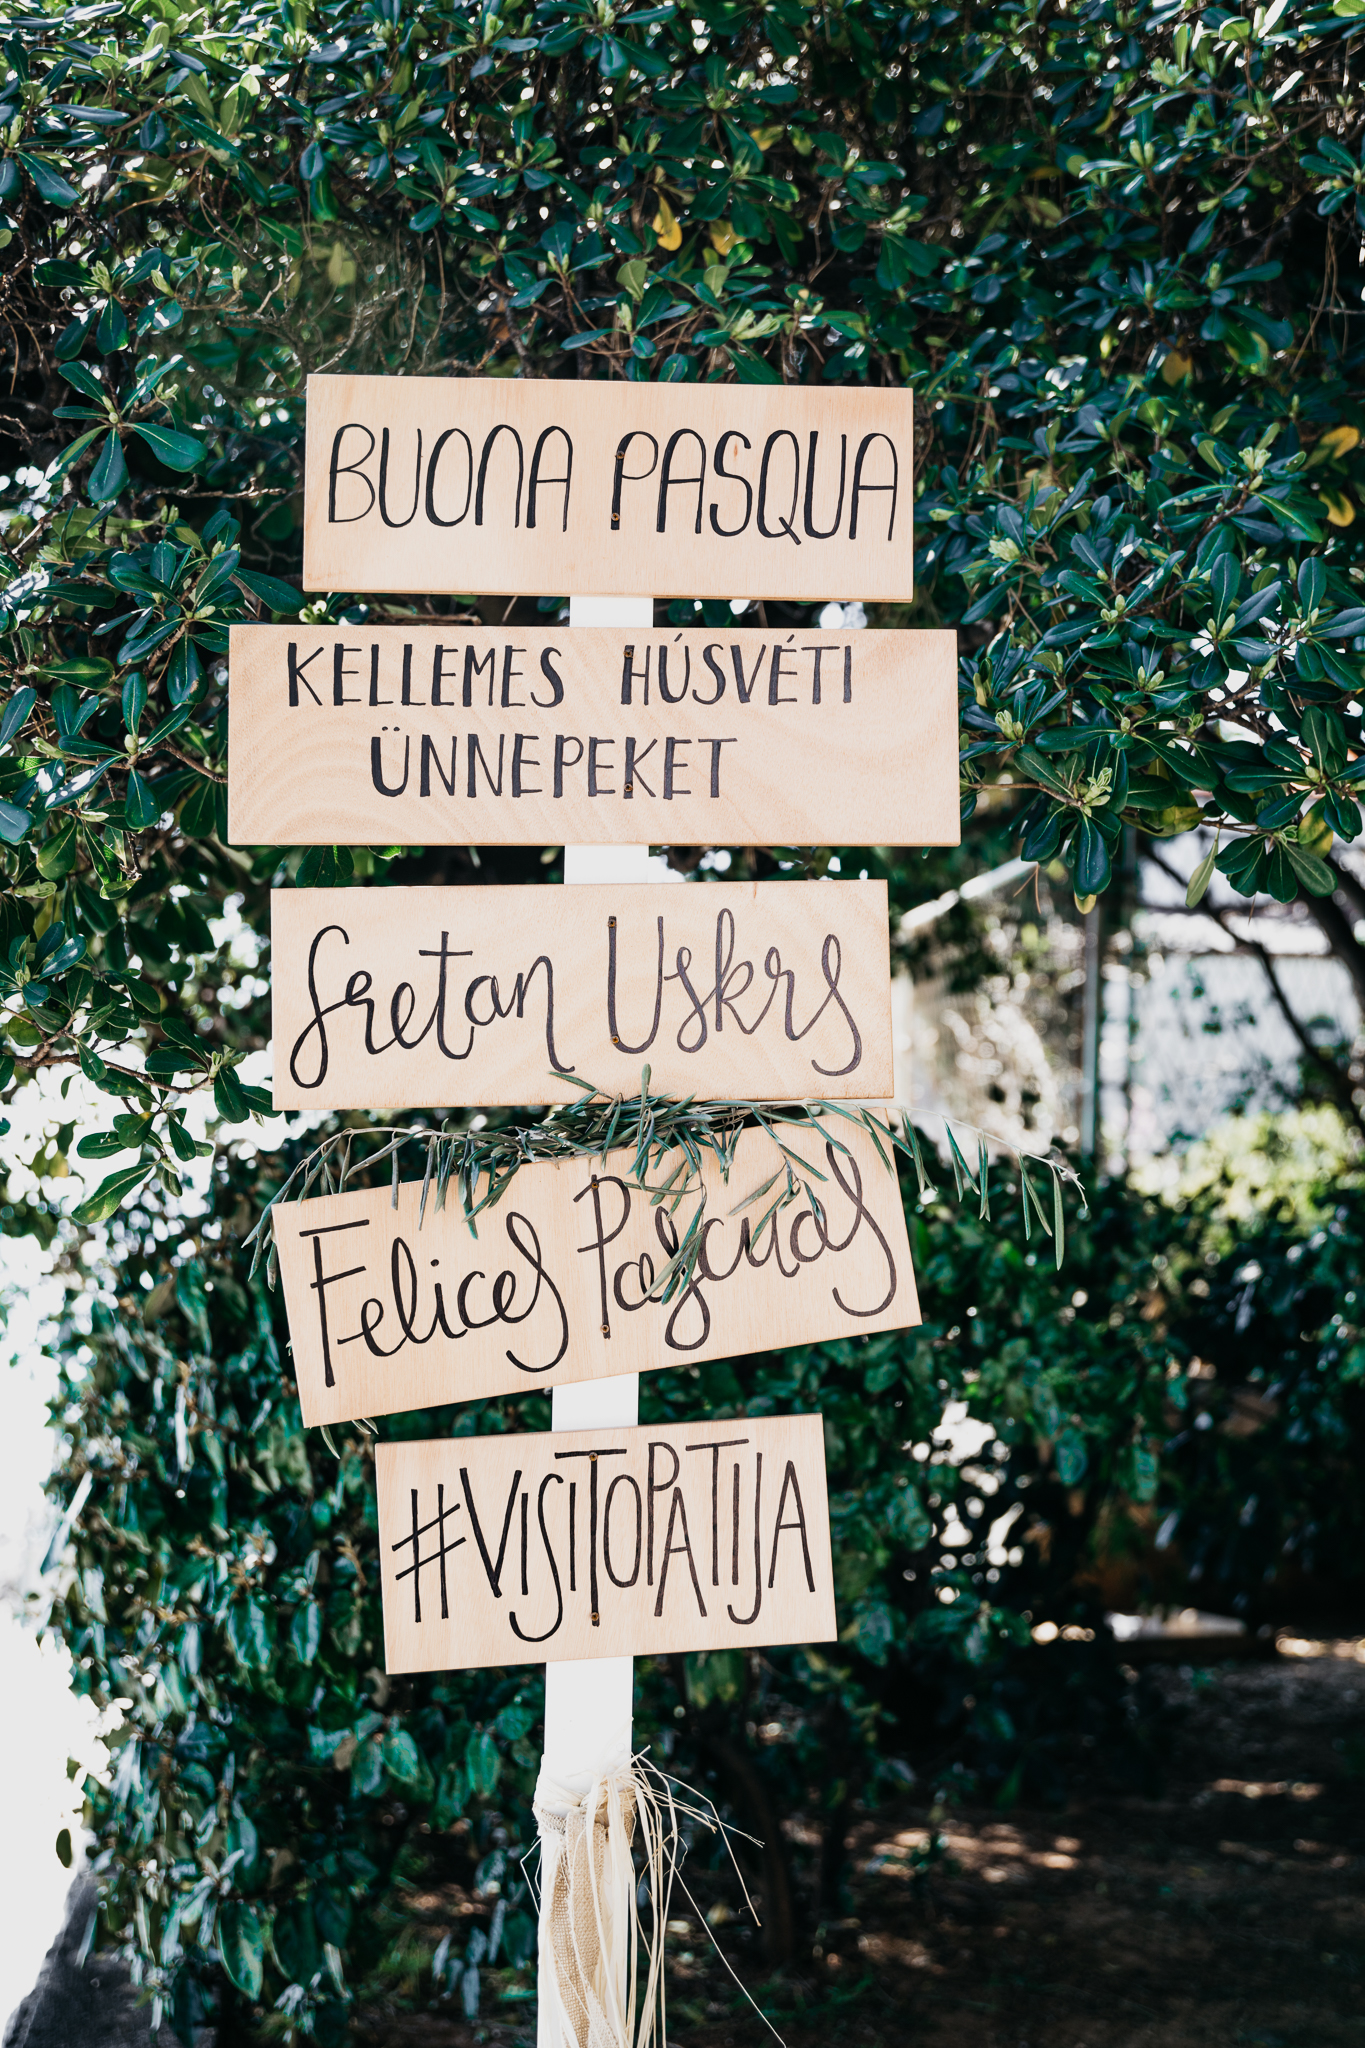 BUONA PASQUA
KELLEMES HÚSVÉTI
ÜNNEPEKET
Sretan Uskrs
Felices Pascuas
#VISITOPATIJA